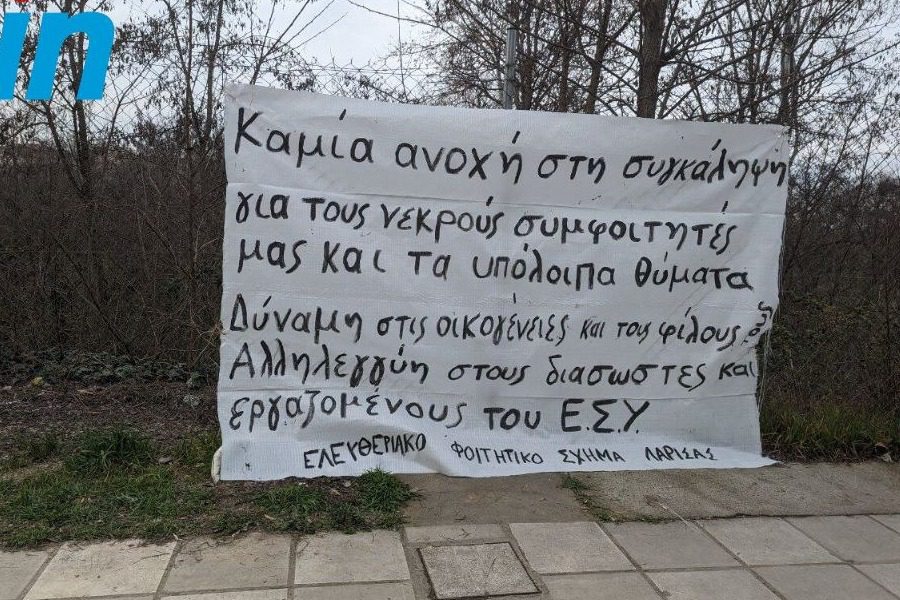 in
Καμία ανοχή στη συγκάληψη
για τους νεκρούς συμφοιτητές
μας και τα υπόλοιπα θύματα
Δύναμη στις οικογένειες και τους φίλους τους
Αλληλεγγύη στους διασώστες και
εργαζομένους του Ε.Σ.Υ.
ΕΛΕΥΘΕΡΙΑΚΟ ΦΟΙΤΗΤΙΚΟ ΣΧΗΜΑ ΛΑΡΙΣΑΣ